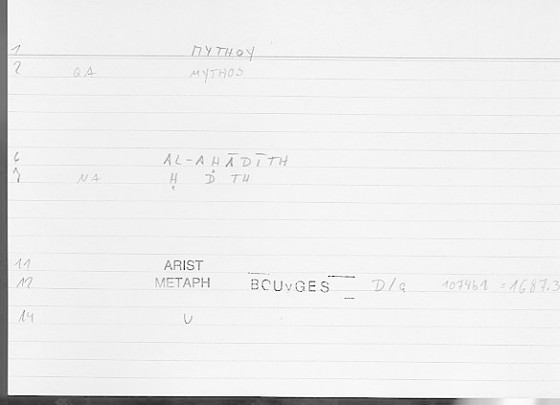 1 ΠΥΤΗΟΥ
2 GA MYTHOS
6 AL-AḤĀDĪTH
7 NA Ḥ D TH
11 ARIST
12 METAPH BOUvGES D/a 107461 =1687.3
14 U